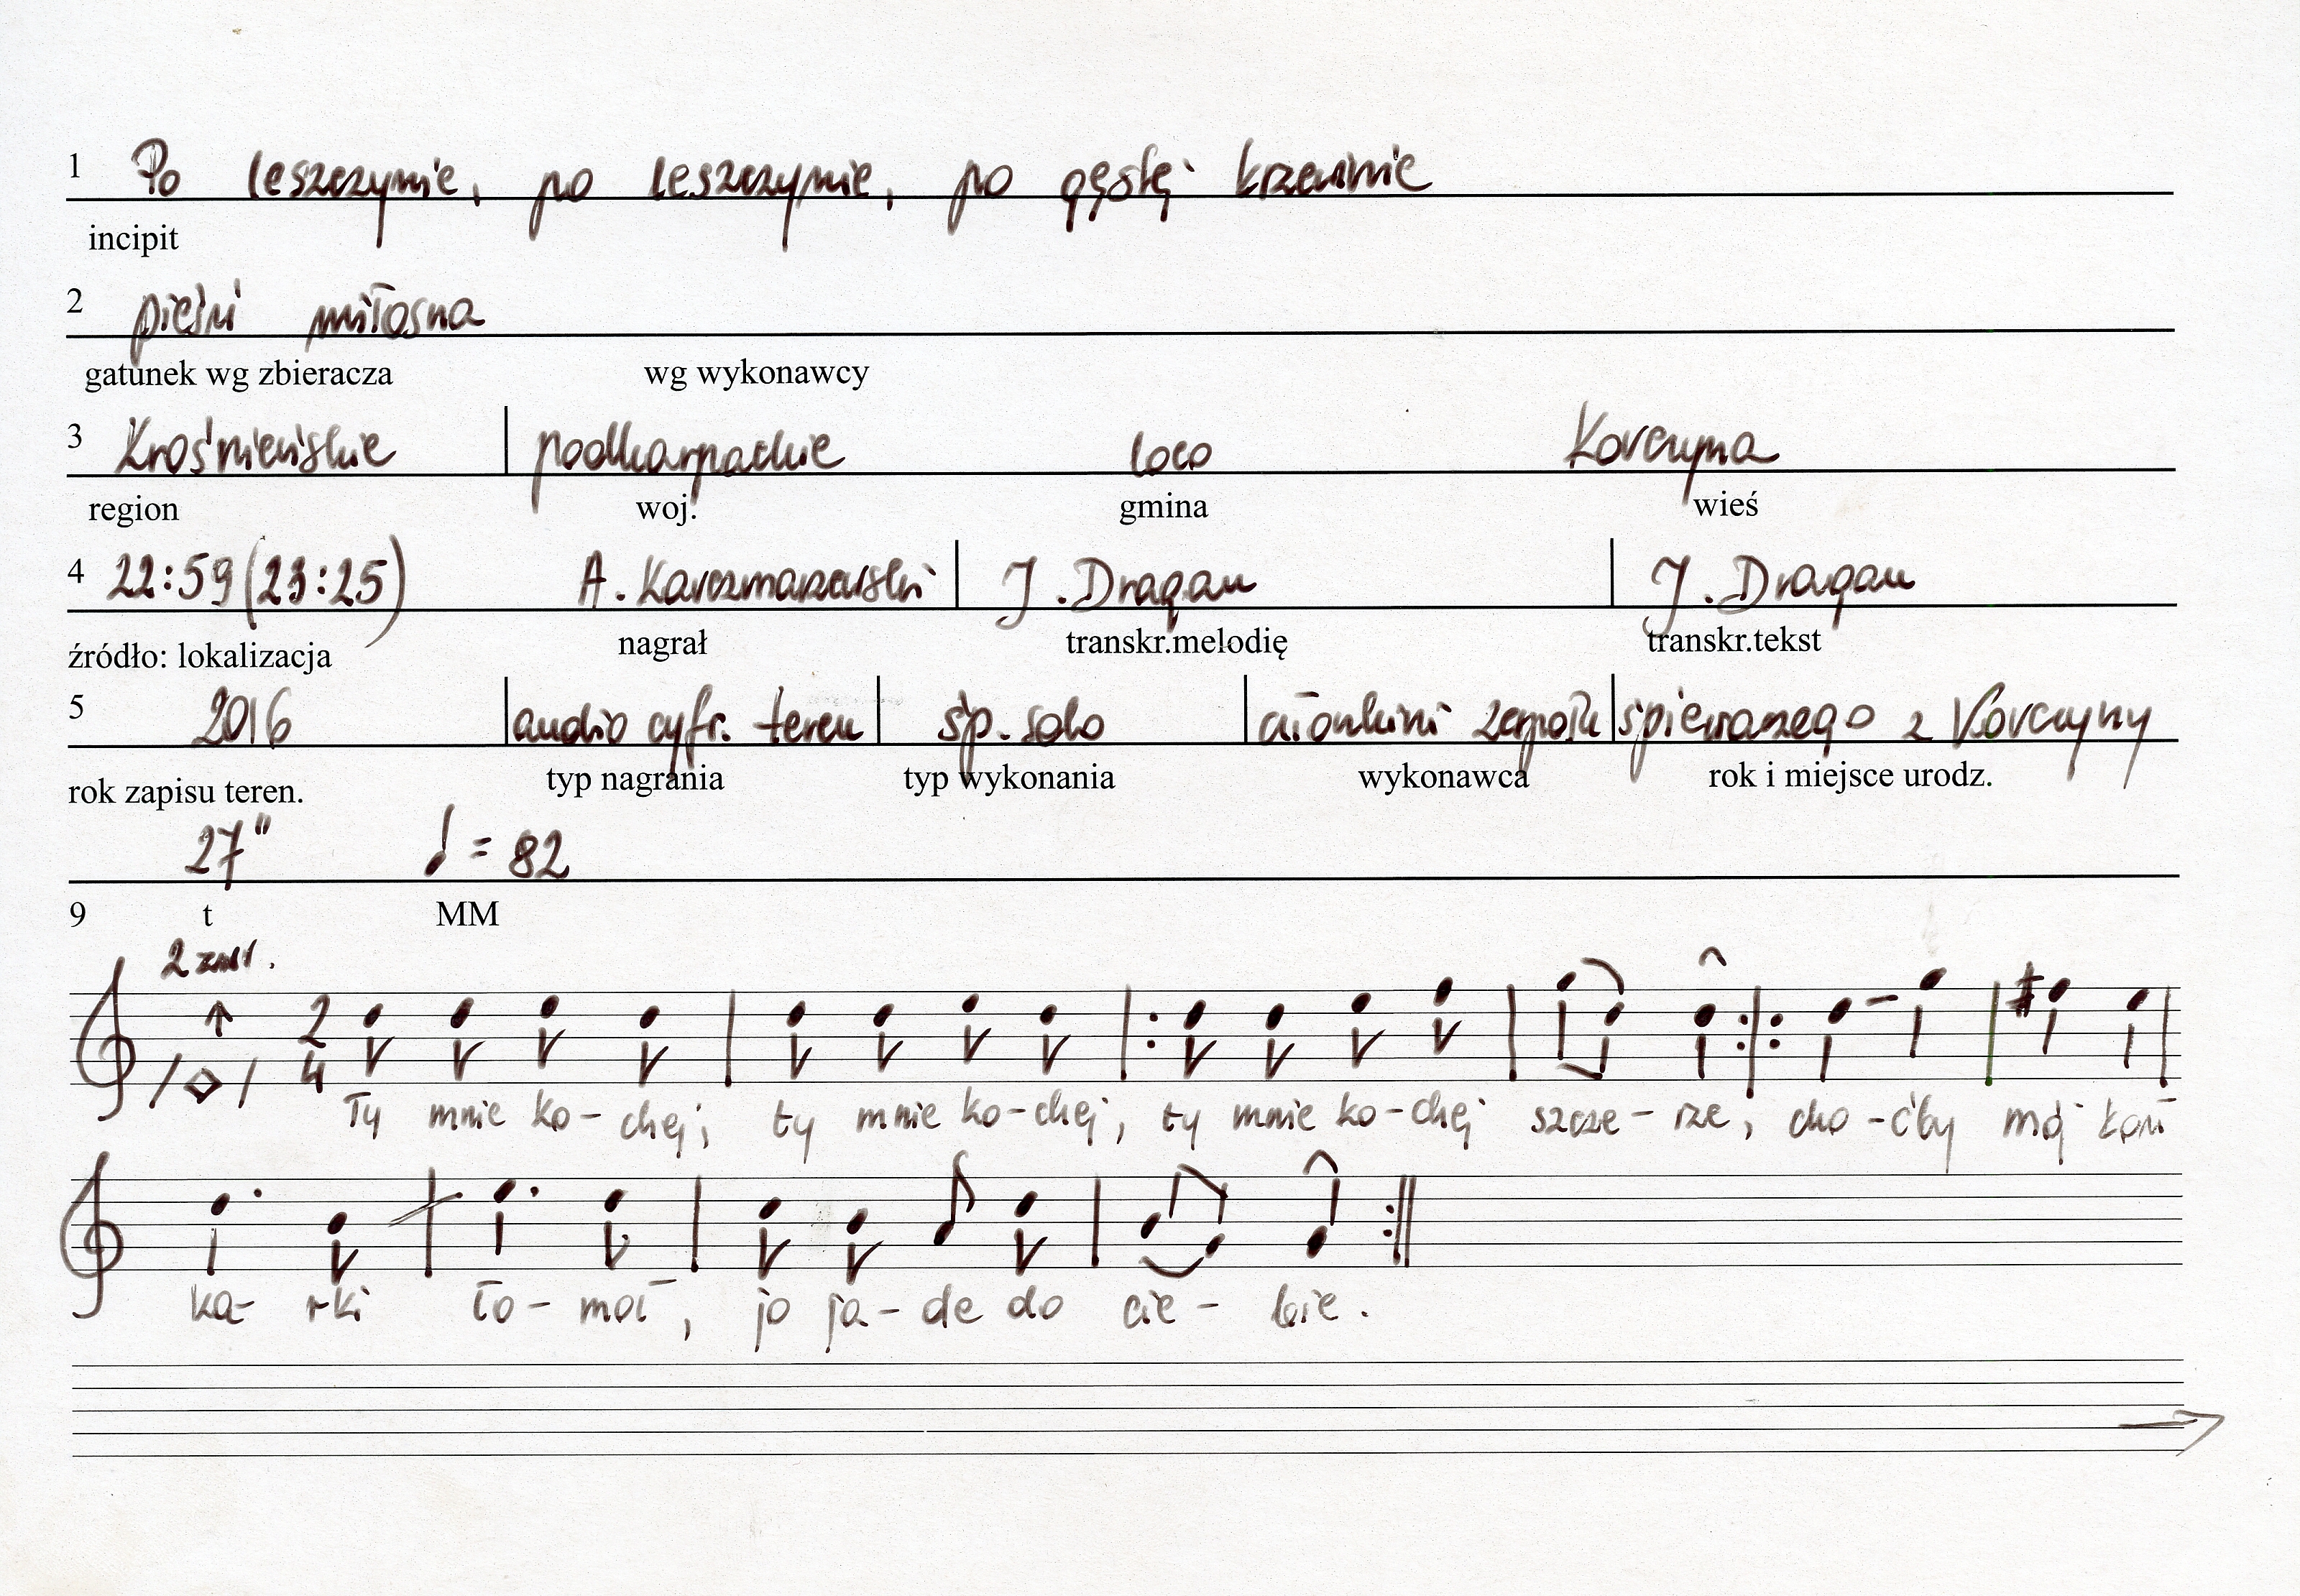 1 Po leszczynie, po leszczynie, po gęstej krzewinie
incipit
2 pieśń miłosna
gatunek wg zbieracza wg wykonawcy
3 Krośnieńskie podkarpackie loco Korczyna
region woj. gmina wieś
4 22:59 (23:25) A. Karczmarzewski J. Dragan J. Dragan
źródło: lokalizacja nagrał transkr.melodię transkr.tekst
5 2016 audio cyfr. teren śp. solo członkini zespołu śpiewaczego z Korczyny
rok zapisu teren. typ nagrania typ wykonania wykonawca rok i miejsce urodz.
27" ♩ = 82
9 t MM
2 zwr.
2
4
Ty mnie ko-chej, ty mnie ko-chej, ty mnie ko-chej szcze-rze, cho-ćby mój koń
ka-rki ło-moł, jo ja-de do cie-bie.